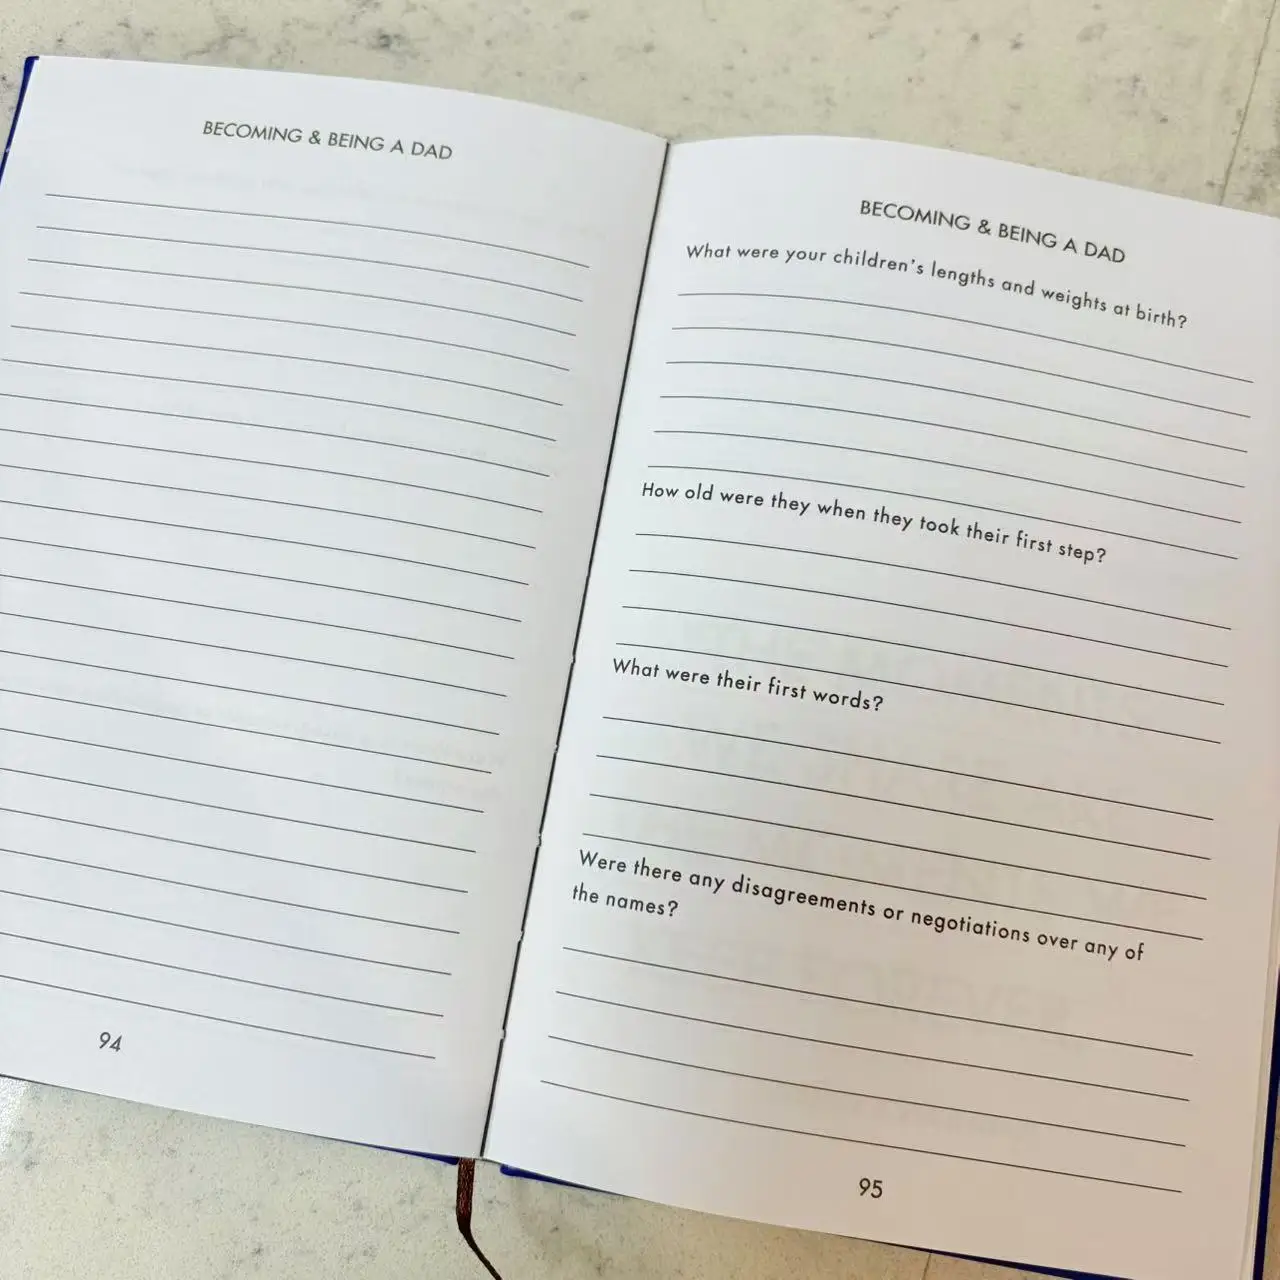 BECOMING & BEING A DAD
94
BECOMING & BEING A DAD
What were your children's lengths and weights at birth?
How old were they when they took their first step?
What were their first words?
Were there any disagreements or negotiations over any of
the names?
95